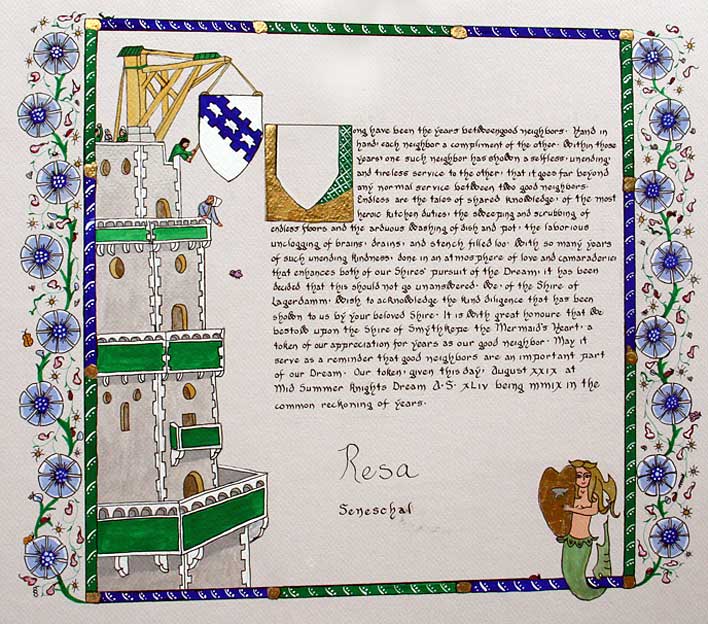 ong have been the years betweengood neighbors. Hand in
hand, each neighbor a compliment of the other. Within those
years, one such neighbor has shown a selfless, unending,
and tireless service to the other, that it goes far beyond
any normal service between two good neighbors.
Endless are the tales of shared knowledge, of the most
heroic kitchen duties, the sweeping and scrubbing of
endless floors and the arduous washing of dish and pot, the laborious
unclogging of brains, drains, and stench filled loo. With so many years
of such unending kindness, done in an atmosphere of love and camaraderie
that enhances both of our Shires' pursuit of the Dream, it has been
decided that this should not go unanswered. We, of the Shire of
Lagerdamm, wish to acknowledge the kind diligence that has been
shown to us by your beloved Shire. It is with great honoure that We
bestow upon the Shire of Smythkepe the Mermaid's Heart, a
token of our appreciation for years as our good neighbor. May it
serve as a reminder that good neighbors are an important part
of our Dream. Our token, given this day, August XXIX at
Mid Summer Knights Dream A.S. XLIV being MMIX in the
common reckoning of years.
Resa
Seneschal